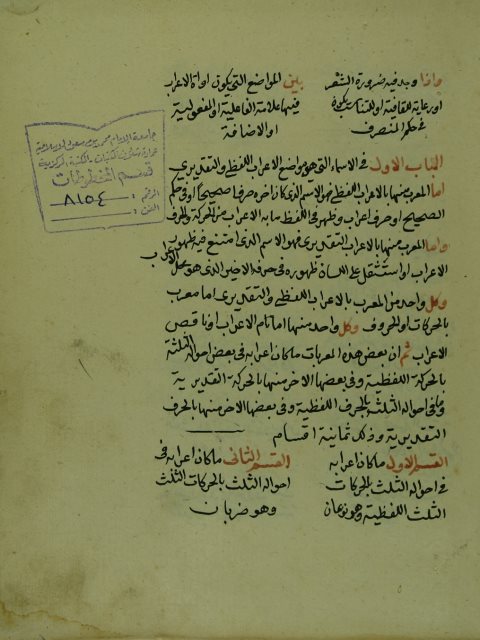 واذا وجد فيه ضرورة الشعر
او رعاية للقافية او للتناسب يكون
في حكم المنصرف
بين المواضع التي يكون اداة الاعراب
فيها علامة الفاعلية او المفعولية
او الاضافة
الباب الاول في الاسماء التي هي مواضع الاعراب اللفظي والتقديري
اما المعرب منها بالاعراب اللفظي فهو الاسم الذي كان اخره حرفا صحيحا او في حكم
الصحيح او حرف اعراب وظهر في اللفظ ما به الاعراب من الحركة والحرف
واما المعرب منها بالاعراب التقديري فهو الاسم الذي امتنع فيه ظهور
الاعراب او استثقل على اللسان ظهوره في حرفه الاخير الذي هو محل الاعراب
وكل واحد من المعرب بالاعراب اللفظي والتقديري اما معرب
بالحركات او الحروف وكل واحد منهما اما تام الاعراب او ناقص
الاعراب ثم ان بعض هذه المعربات ما كان اعرابه في بعض احواله الثلثة
بالحركة اللفظية وفي بعضها الاخر منها بالحركة التقديرية
وما في احواله الثلثة بالحرف اللفظية وفي بعضها الاخر منها بالحرف
التقديرية وذلك ثمانية اقسام
القسم الاول ما كان اعرابه
في احواله الثلث بالحركات
الثلث اللفظية وهو نوعان
القسم الثاني ما كان اعرابه في
احواله الثلث بالحركات الثلث
وهو ضربان
جامعة الامام محمد بن سعود الاسلامية
عمادة شؤون المكتبات - المكتبة المركزية
قسم المخطوطات
الرقم : ٨١٥٤
الفن :